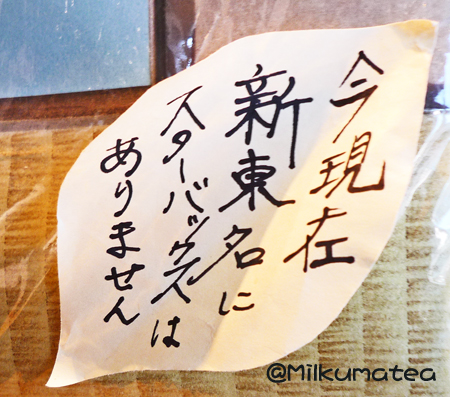 今現在
新東名に
スターバックスは
ありません
@Milkumatea